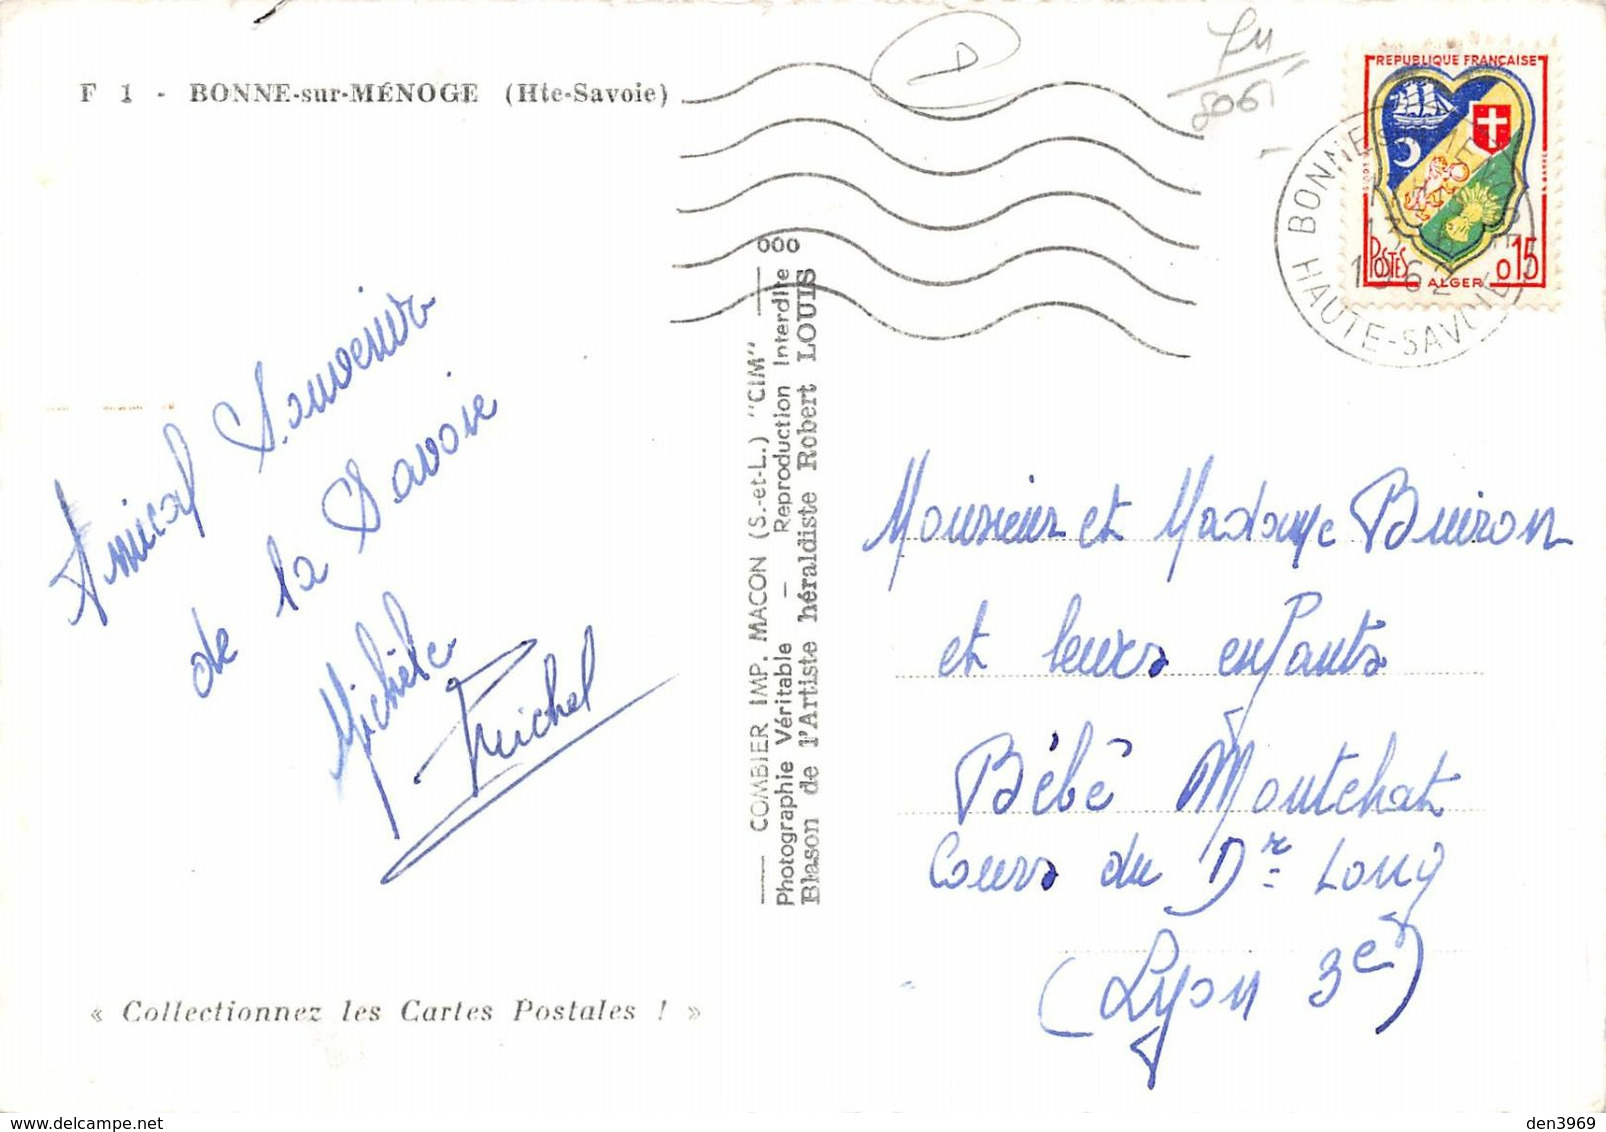 F 1 - BONNE-sur-MÉNOGE (Hte-Savoie)
Amical Souvenir
de la Savoie
Michèle
Michel
« Collectionnez les Cartes Postales ! »
COMBIER IMP. MACON (S.-et-L.) "CIM"
Photographie Véritable — Reproduction Interdite
Blason de l'Artiste héraldiste Robert LOUIS
000
REPUBLIQUE FRANÇAISE
POSTES
ALGER
0,15
BONNE
HAUTE-SAVOIE
Monsieur et Madame Buiron
et leurs enfants
Bébé Montchat
Cours du Dr Long
(Lyon 3e)
den3969